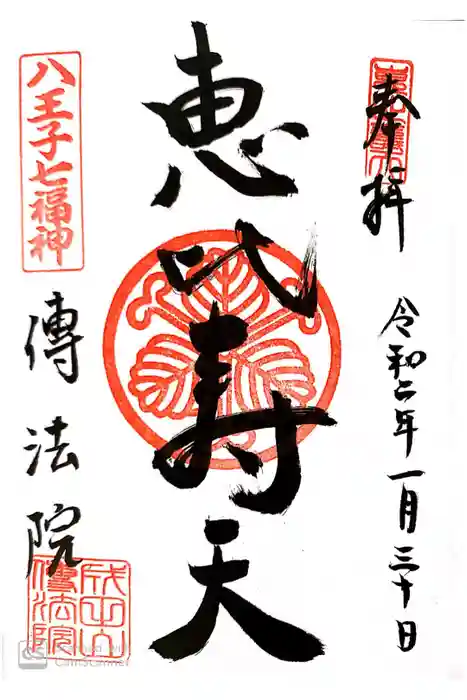 奉拝
令和二年一月三十日
恵比寿天
八王子七福神
傳法院
成田山
傳法院
CS Scanned with
CamScanner